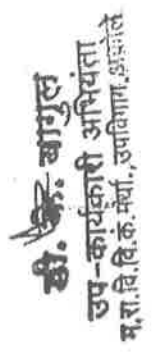 डी. के. बागुल
उप-कार्यकारी अभियंता
म.रा.वि.वि.कं.मर्या., उपविभाग, अकोले